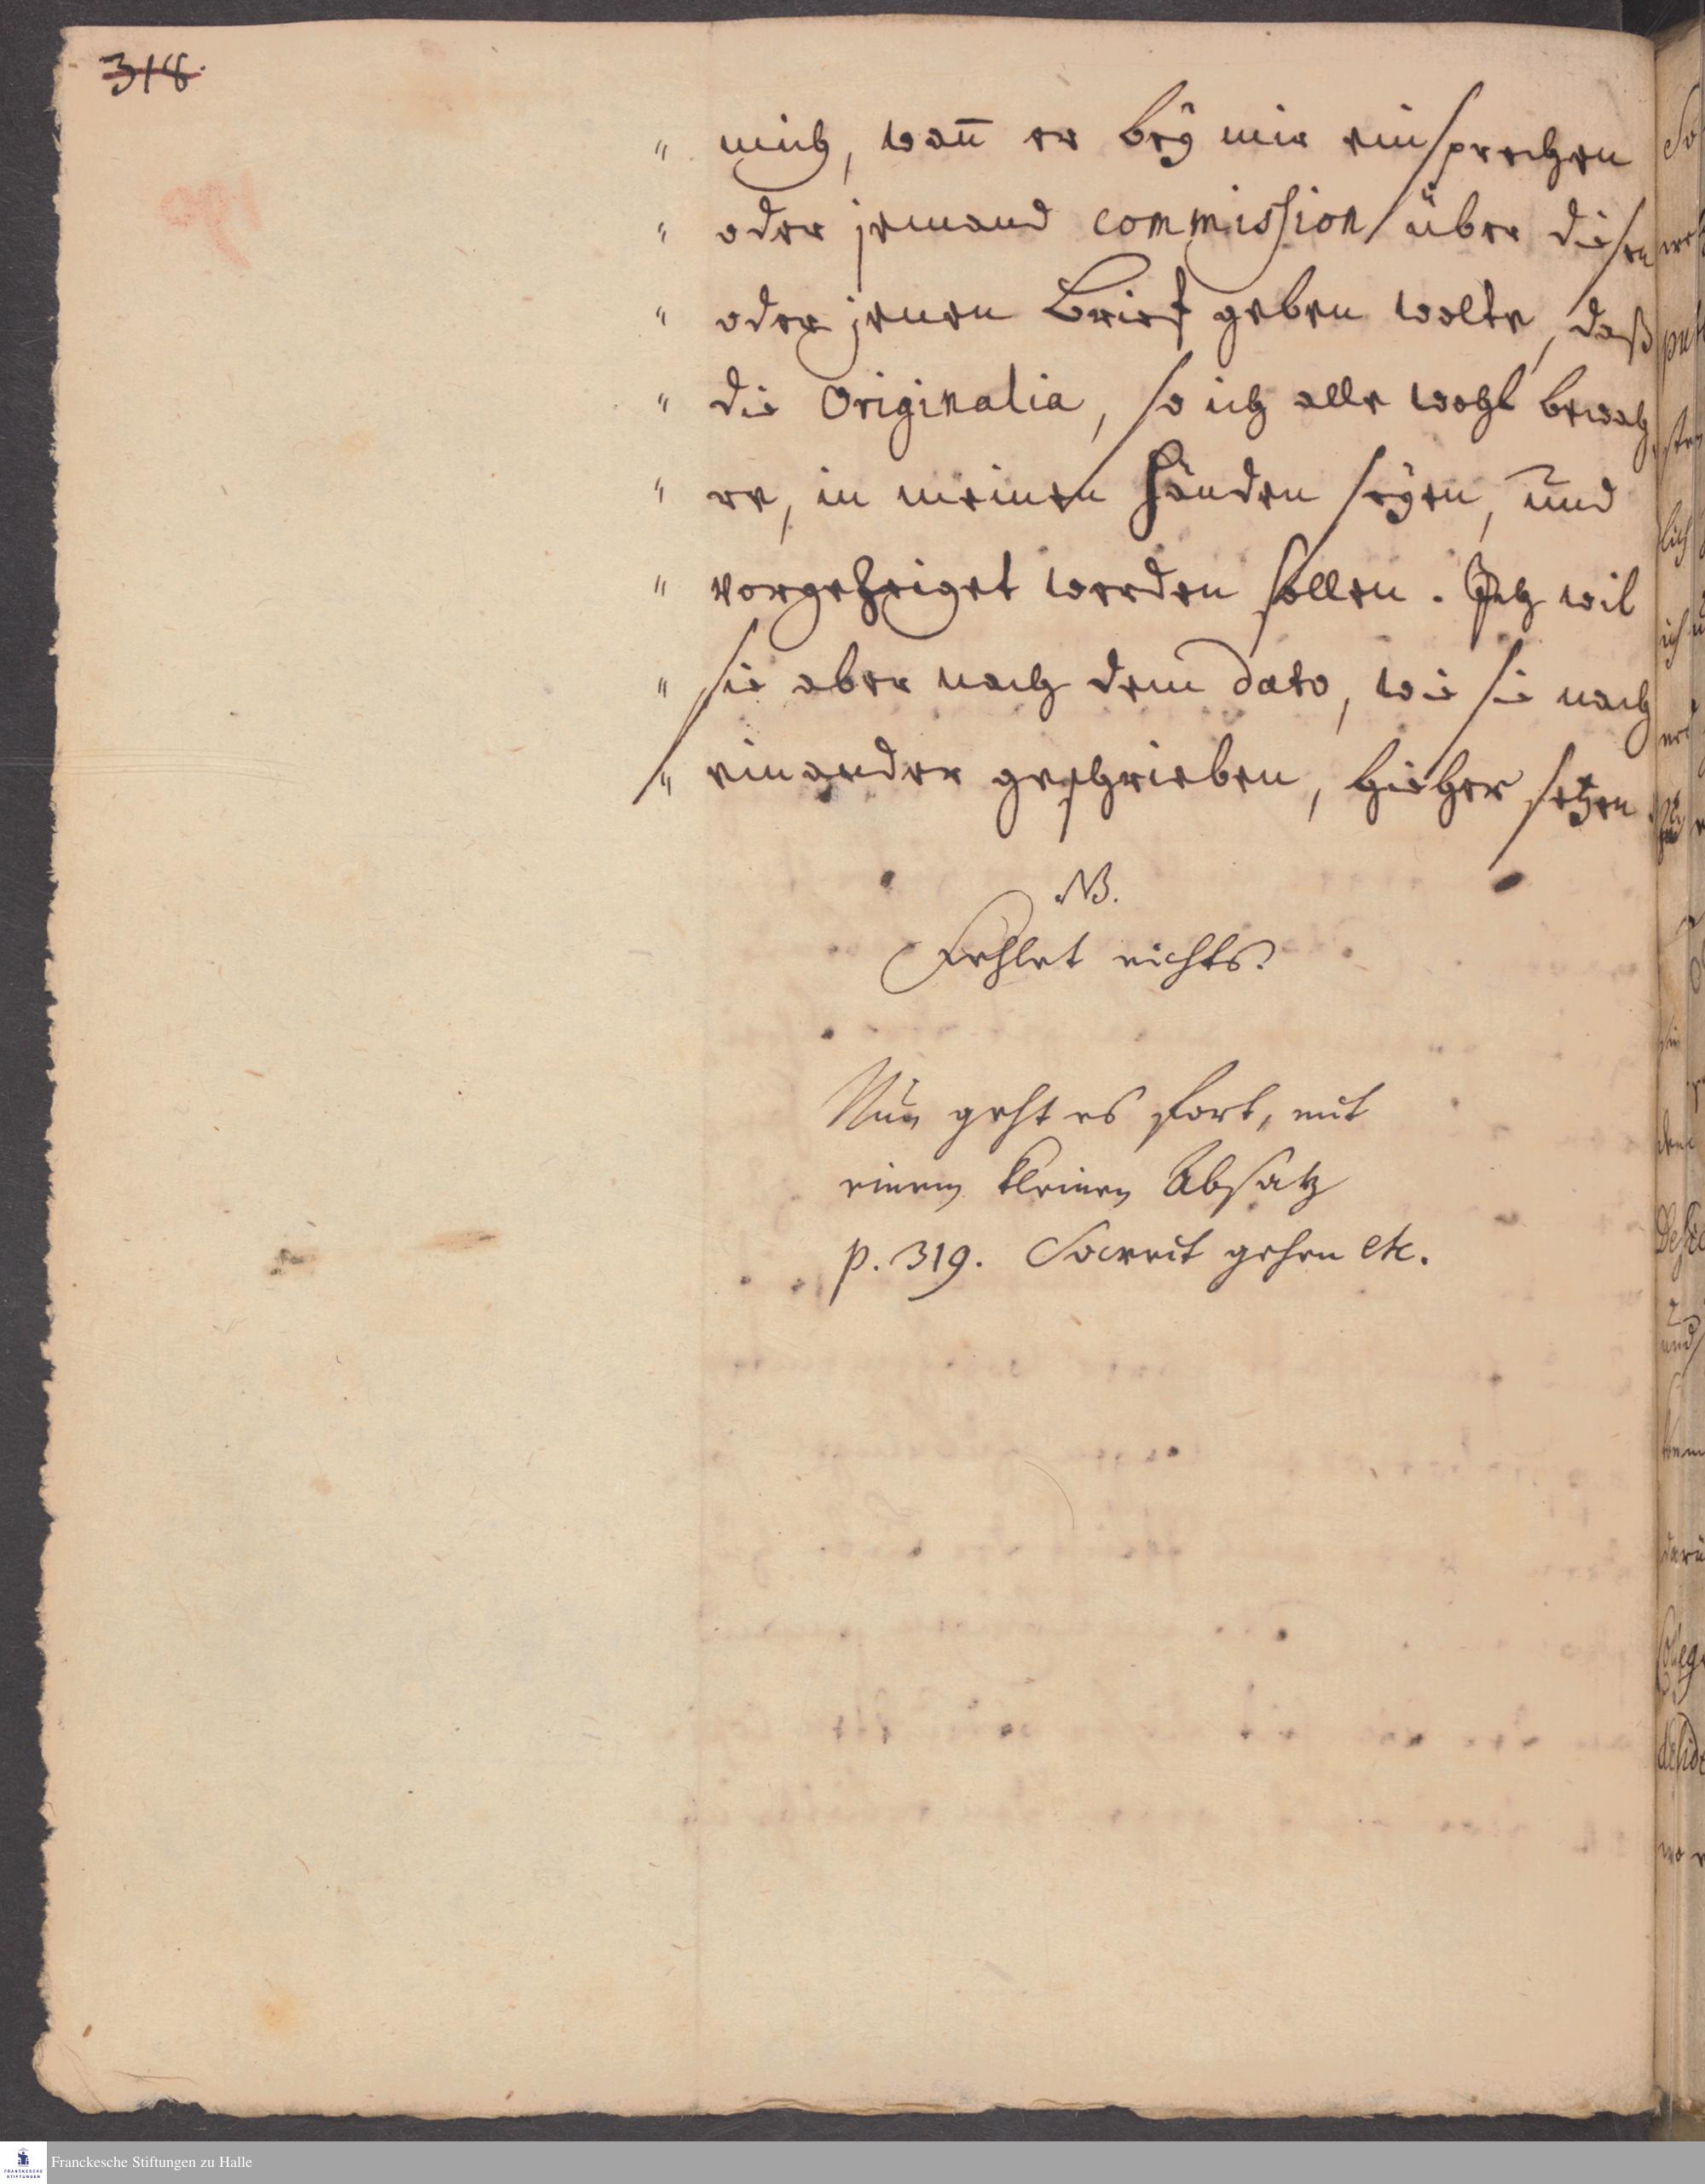 318.
" mich, wañ er beÿ mir einsprechen
" oder jemand commission über diesen
" oder jenen Brief geben wolte, daß
" die Originalia, so ich alle wohl bewah,
" re, in meinen Händen seÿen, und
" vorgezeiget werden sollen. Ich wil
" sie aber nach dem dato, wie sie nach
" einander geschrieben, hieher setzen.
NB.
Fehlet nichts.
Nun geht es fort, mit
einem kleinen Absatz
p. 319. Soweit gehen etc.
Franckesche Stiftungen zu Halle